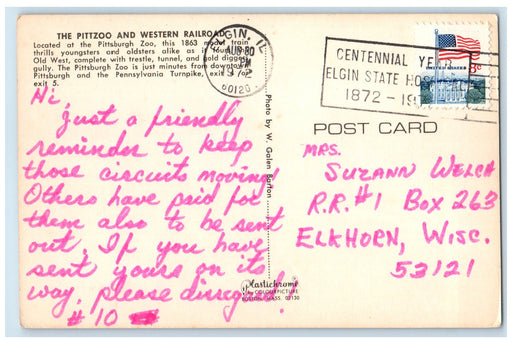 THE PITTZOO AND WESTERN RAILROAD
Located at the Pittsburgh Zoo, this 1863 model train
thrills youngsters and oldsters alike as it
Old West, complete with trestle, tunnel, and gold
gully. The Pittsburgh Zoo is just minutes from downtown
Pittsburgh and the Pennsylvania Turnpike, exit
exit 5.
ELGIN, IL
AUG 30
PM
1972
60120
CENTENNIAL YEAR
ELGIN STATE HOSPITAL
1872 - 19
UNITED STATES
8c
POST CARD
Hi,
Just a friendly
reminder to keep
those circuits moving.
Others have paid for
them also to be sent
out. If you have
sent yours on its
way, please disregard!
# 10
Photo by W. Galen Barton
Plastichrome
BY COLOURPICTURE
BOSTON, MASS. 02130
MRS.
SUZANN WELCH
R.R. #1 BOX 263
ELKHORN, WISC.
53121